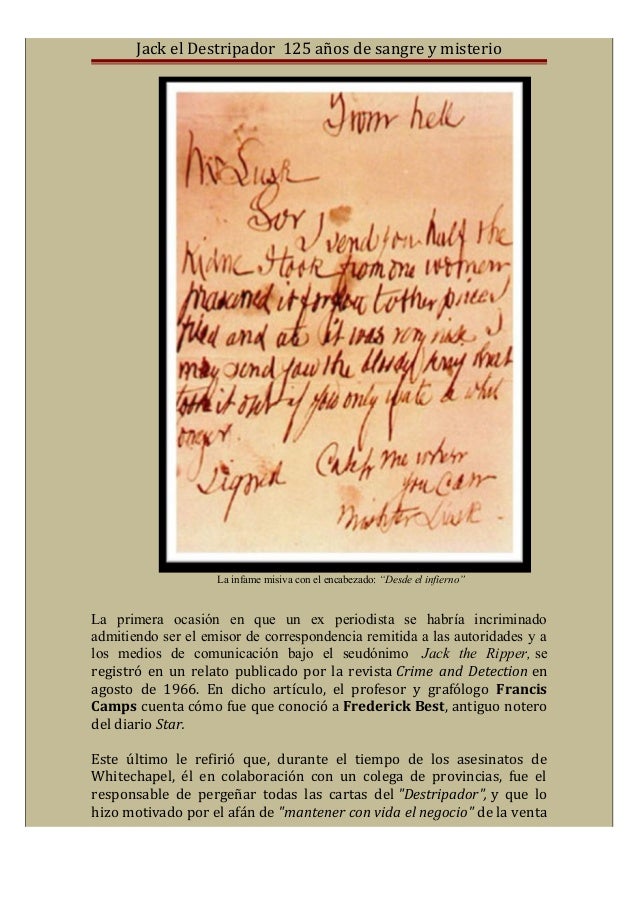 Jack el Destripador 125 años de sangre y misterio
From hell
Mr Lusk
Sor
I send you half the
Kidne I took from one women
prasarved it for you tother piece I
fried and ate it was very nise I
may send you the bloody knif that
took it out if you only wate a whil
longer.
Signed Catch me when
you Can
Mishter Lusk.
La infame misiva con el encabezado: “Desde el infierno”
La primera ocasión en que un ex periodista se habría incriminado
admitiendo ser el emisor de correspondencia remitida a las autoridades y a
los medios de comunicación bajo el seudónimo Jack the Ripper, se
registró en un relato publicado por la revista Crime and Detection en
agosto de 1966. En dicho artículo, el profesor y grafólogo Francis
Camps cuenta cómo fue que conoció a Frederick Best, antiguo notero
del diario Star.
Este último le refirió que, durante el tiempo de los asesinatos de
Whitechapel, él en colaboración con un colega de provincias, fue el
responsable de pergeñar todas las cartas del "Destripador", y que lo
hizo motivado por el afán de "mantener con vida el negocio" de la venta